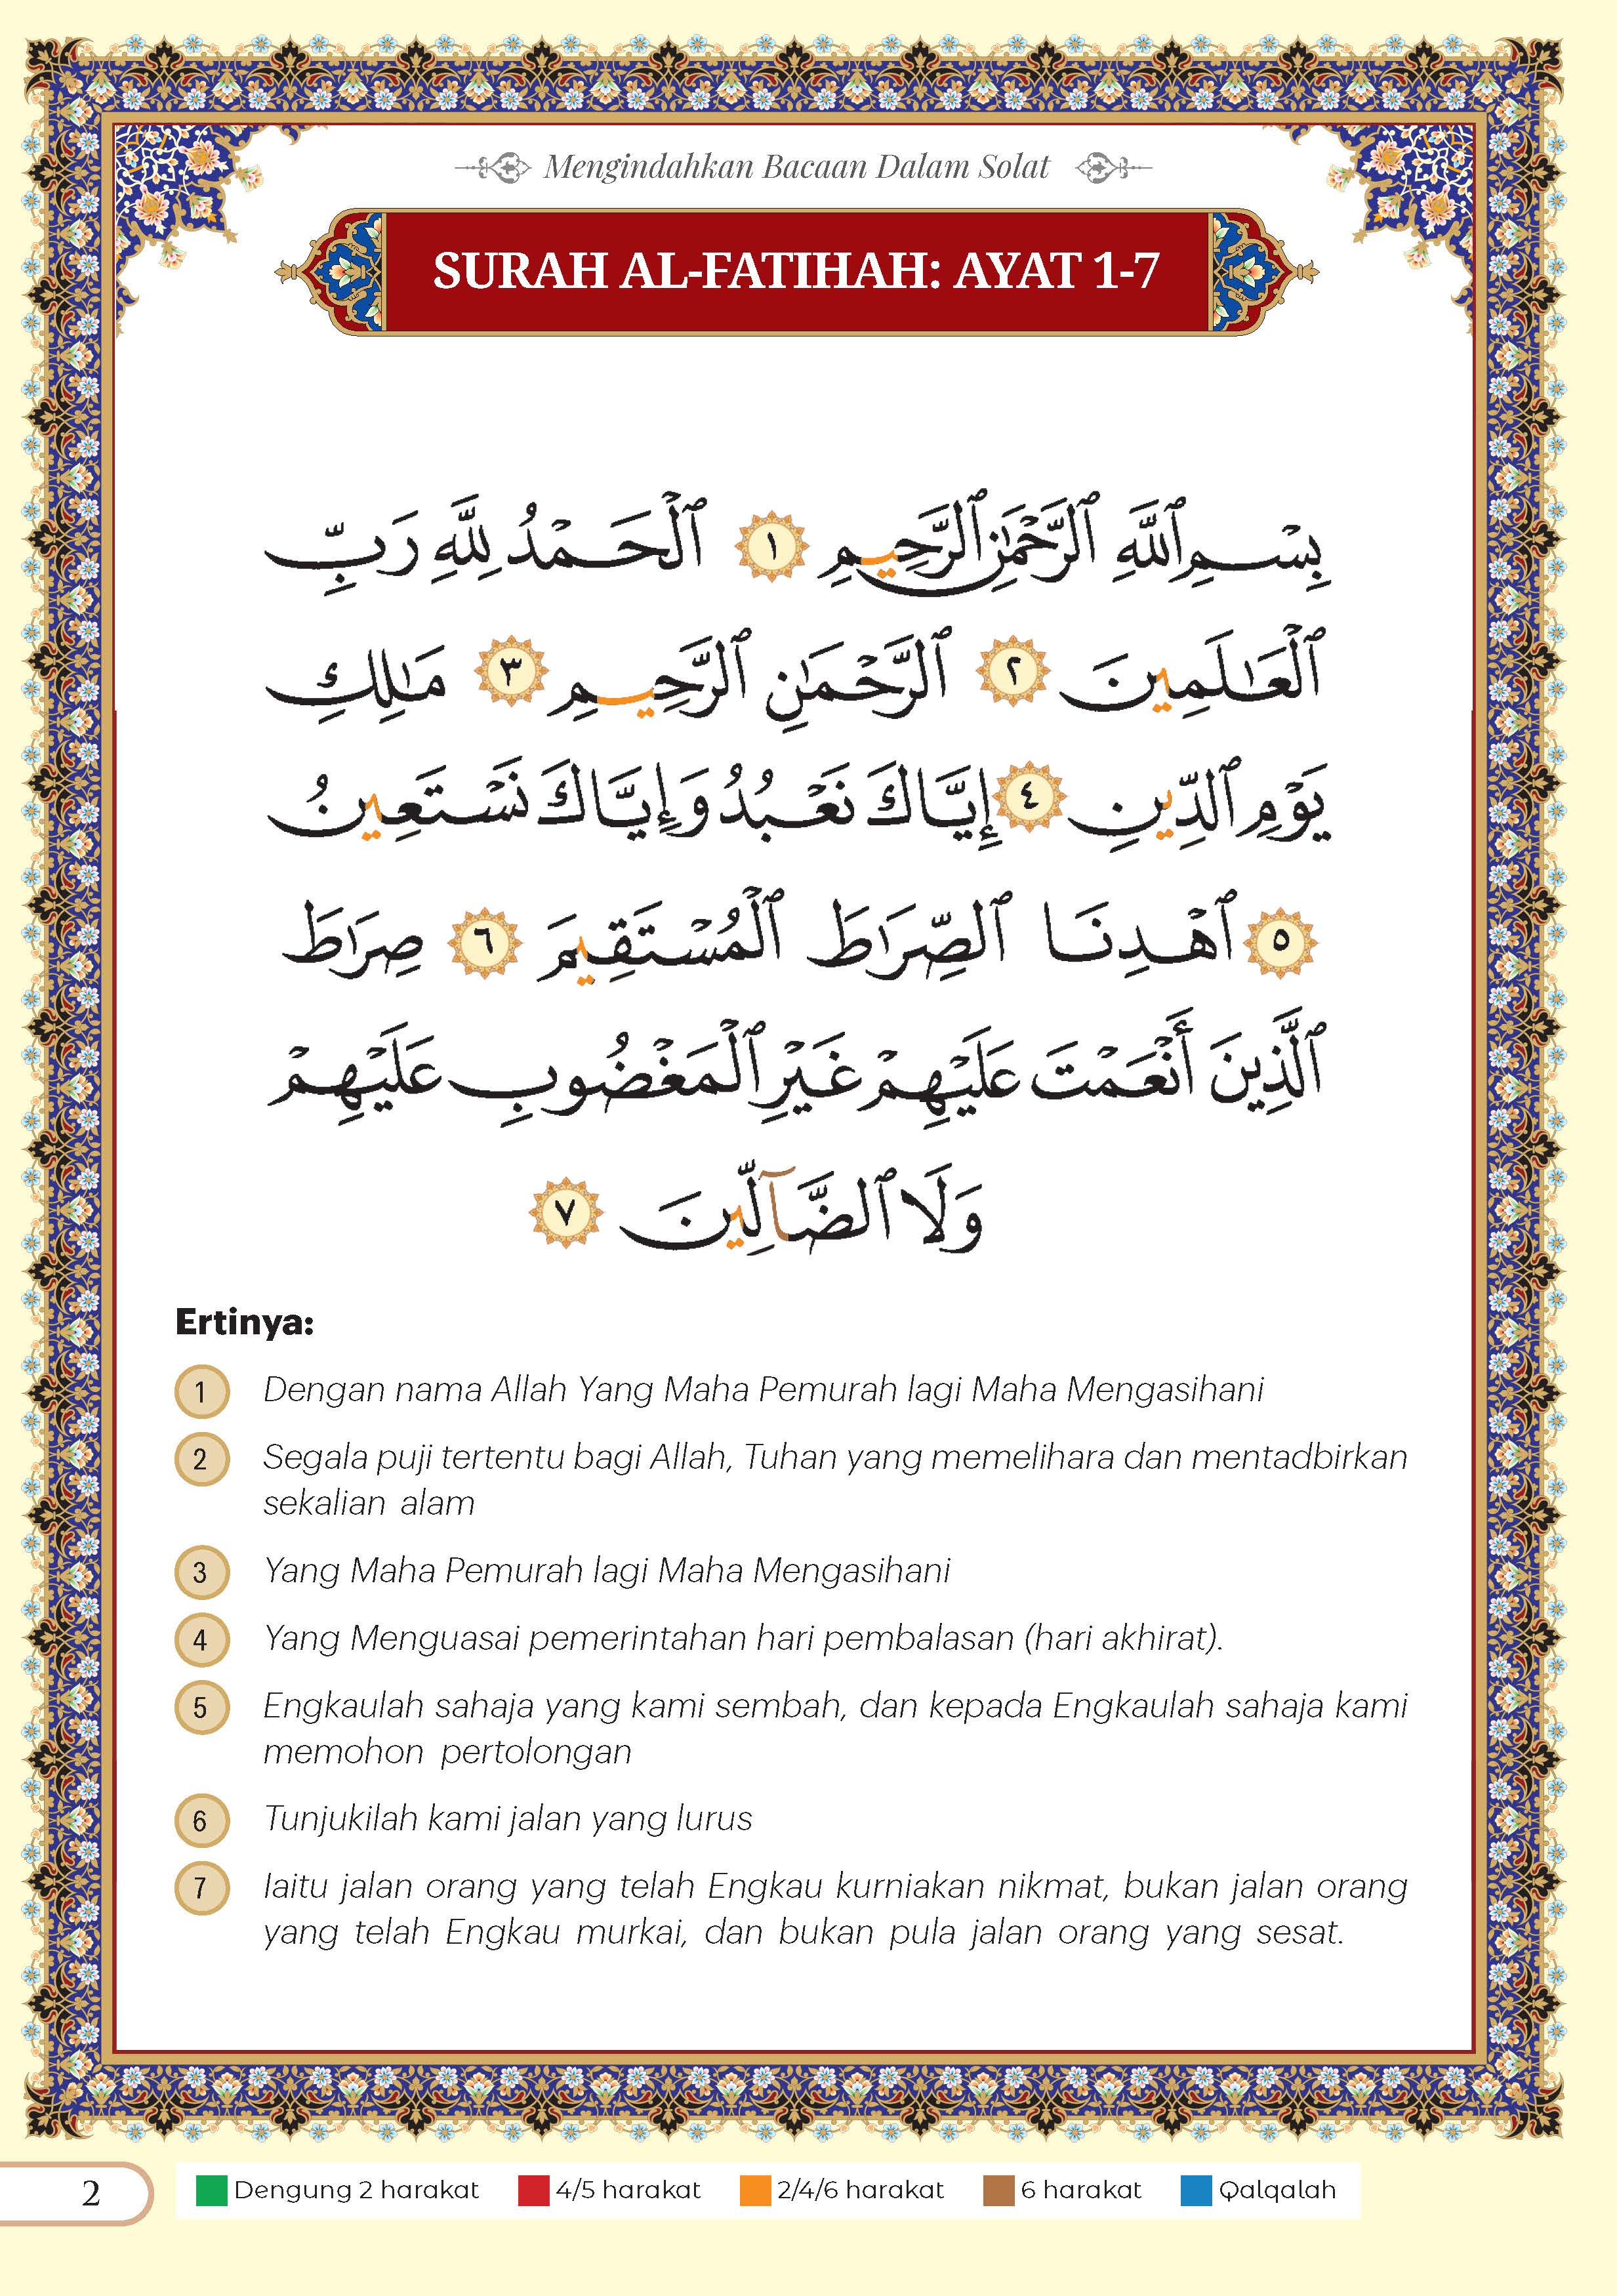 Mengindahkan Bacaan Dalam Solat
SURAH AL-FATIHAH: AYAT 1-7
بِسْمِ ٱللَّهِ ٱلرَّحْمَٰنِ ٱلرَّحِيمِ ١ ٱلْحَمْدُ لِلَّهِ رَبِّ
ٱلْعَالَمِينَ ٢ ٱلرَّحْمَٰنِ ٱلرَّحِيمِ ٣ مَالِكِ
يَوْمِ ٱلدِّينِ ٤ إِيَّاكَ نَعْبُدُ وَإِيَّاكَ نَسْتَعِينُ
٥ ٱهْدِنَا ٱلصِّرَاطَ ٱلْمُسْتَقِيمَ ٦ صِرَاطَ
ٱلَّذِينَ أَنْعَمْتَ عَلَيْهِمْ غَيْرِ ٱلْمَغْضُوبِ عَلَيْهِمْ
وَلَا ٱلضَّآلِّينَ ٧
Ertinya:
1 Dengan nama Allah Yang Maha Pemurah lagi Maha Mengasihani
2 Segala puji tertentu bagi Allah, Tuhan yang memelihara dan mentadbirkan
sekalian alam
3 Yang Maha Pemurah lagi Maha Mengasihani
4 Yang Menguasai pemerintahan hari pembalasan (hari akhirat).
5 Engkaulah sahaja yang kami sembah, dan kepada Engkaulah sahaja kami
memohon pertolongan
6 Tunjukilah kami jalan yang lurus
7 Iaitu jalan orang yang telah Engkau kurniakan nikmat, bukan jalan orang
yang telah Engkau murkai, dan bukan pula jalan orang yang sesat.
2 Dengung 2 harakat 4/5 harakat 2/4/6 harakat 6 harakat Qalqalah